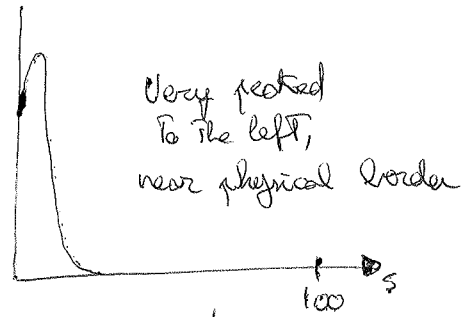 Very peaked
To The left,
near physical border
100
s